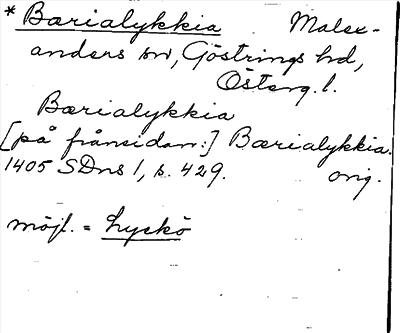 * Bærialykkia Malex-
anders sn, Göstrings hd,
Österg. l.
Bærialykkia
[på frånsidan:] Bærialykkia.
1405 SDns 1, s. 429. orig.
möjl. = Lyckö